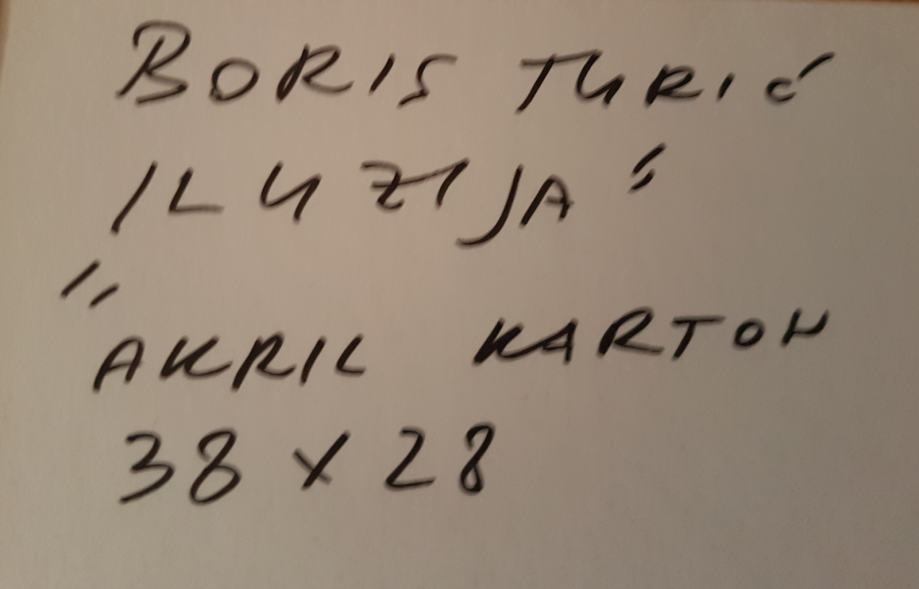 BORIS TURIĆ
„ILUZIJA“
AKRIL KARTON
38 x 28